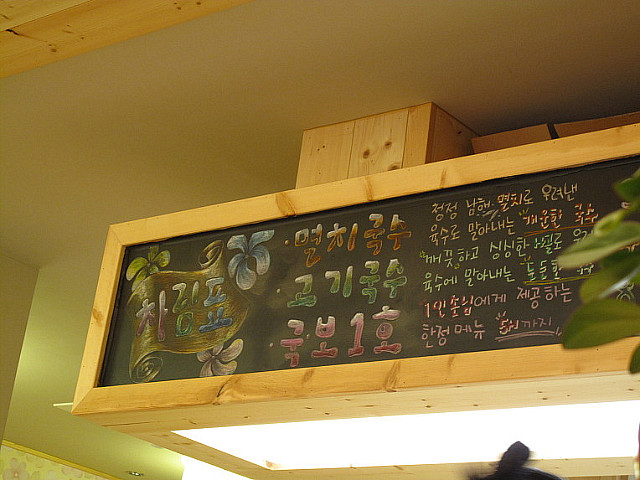 차림표
·멸치국수
·고기국수
·국보1호
청정 남해 멸치로 우려낸
육수로 말아내는 "개운한 국수
"깨끗하고 싱싱한
육수에 말아내는 "든든한
1인 손님에게 제공하는
한정 메뉴 5시까지